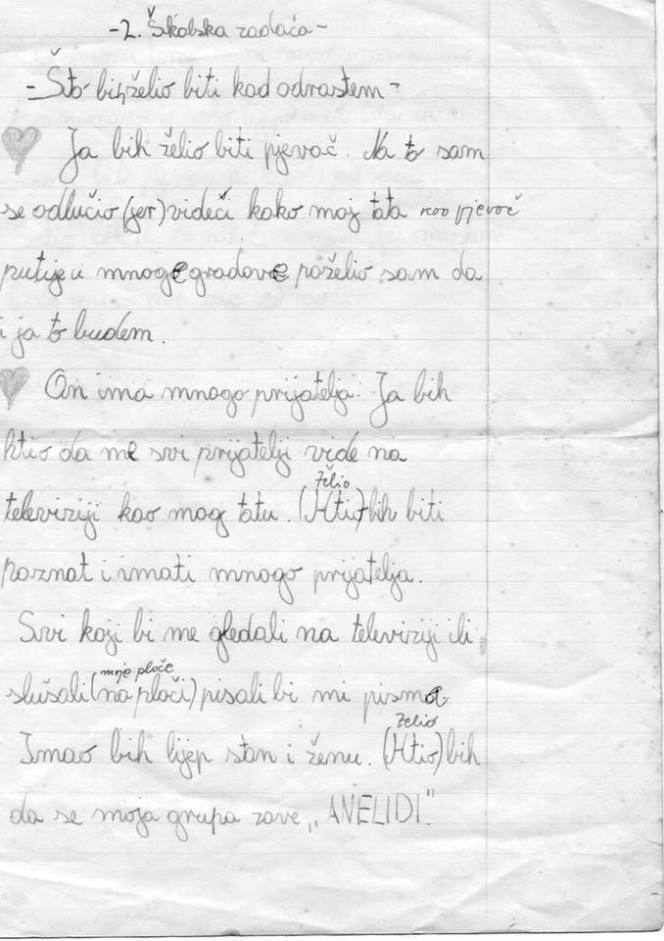 -2. Školska zadaća-
-Što bih želio biti kad odrastem-
Ja bih želio biti pjevač. Na to sam
se odlučio (jer) videći kako moj tata kao pjevač
putuje u mnoge gradove poželio sam da
i ja to budem.
On ima mnogo prijatelja. Ja bih
htio da me svi prijatelji vide na
želio
televiziji kao mog tatu. (Htio) bih biti
poznat i imati mnogo prijatelja.
Svi koji bi me gledali na televiziji ili
moje ploče
slušali (na ploči) pisali bi mi pisma
želio
Imao bih lijep stan i ženu. (Htio) bih
da se moja grupa zove „ANELIDI."